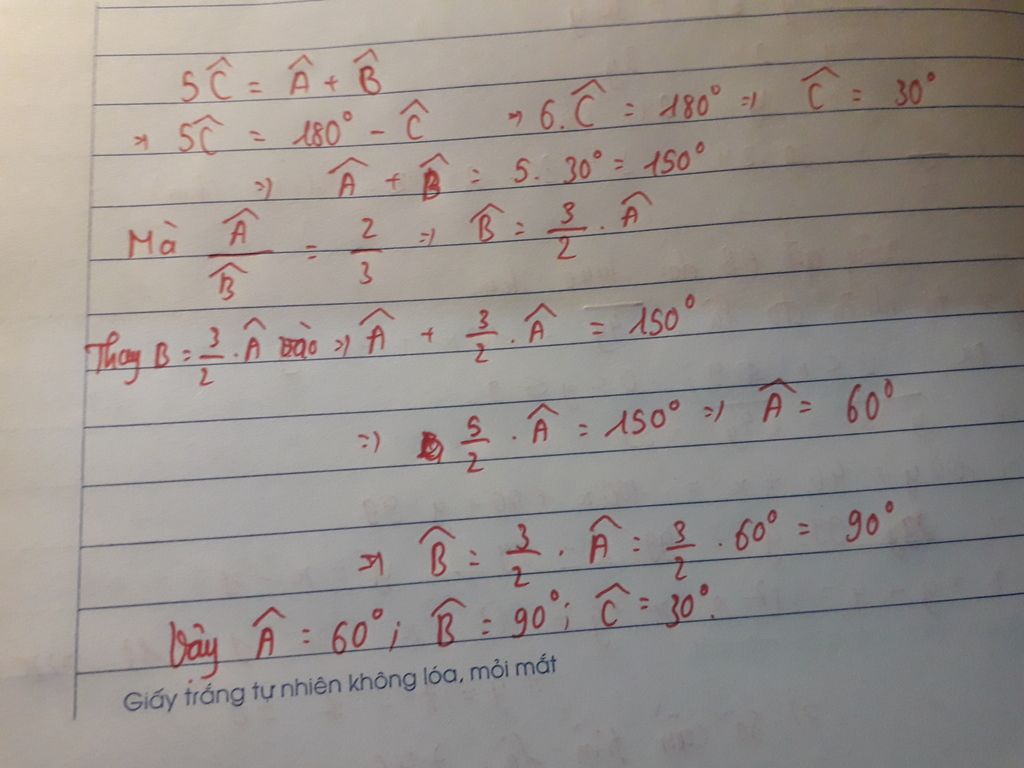 5Ĉ = Â + B̂
⇒ 5Ĉ = 180° - Ĉ ⇒ 6.Ĉ = 180° ⇒ Ĉ = 30°
⇒ Â + B̂ = 5. 30° = 150°
Mà Â/B̂ = 2/3 ⇒ B̂ = 3/2 . Â
Thay B = 3/2 . Â vào ⇒ Â + 3/2 . Â = 150°
⇒ 5/2 . Â = 150° ⇒ Â = 60°
⇒ B̂ = 3/2 . Â = 3/2 . 60° = 90°
Vậy Â = 60°; B̂ = 90°; Ĉ = 30°.
Giấy trắng tự nhiên không lóa, mỏi mắt